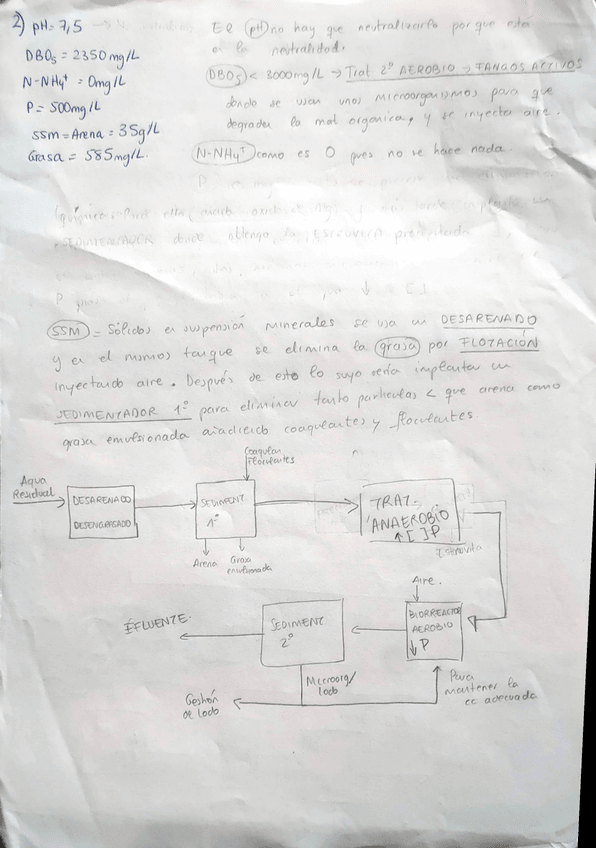 2) pH = 7,5
DBO5 = 2350 mg/L
N-NH4+ = 0 mg/L
P = 500 mg/L
SSM = Arena = 35 g/L
Grasa = 585 mg/L.
El pH no hay que neutralizarlo porque esta
en la neutralidad.
DBO5 < 3000 mg/L → Trat 2º AEROBIO → FANGOS ACTIVOS
donde se usan unos microorganismos para que
degraden la mat organica, y se inyecta aire.
N-NH4+ como es 0 pues no se hace nada.
SSM = Sólidos en suspensión minerales se usa un DESARENADO
y en el mismos tanque se elimina la grasa por FLOTACIÓN
inyectando aire. Después de esto lo suyo sería implantar un
SEDIMENTADOR 1º para eliminar tanto particulas < que arena como
grasa emulsionada añadiendo coagulantes y floculantes
Coagulan
Floculantes
Agua
Residual
DESARENADO
DESENGRASADO
SEDIMENT
1º
TRAT.
ANAEROBIO
↑[ ]P
Estruvita
Arena
Grasa
emulsionada
Aire.
EFLUENTE.
SEDIMENT
2º
BIORREACTOR
AEROBIO
↓P
Microorg/
lodo
Para
mantener la
cc adecuada
Gestión
de lodo